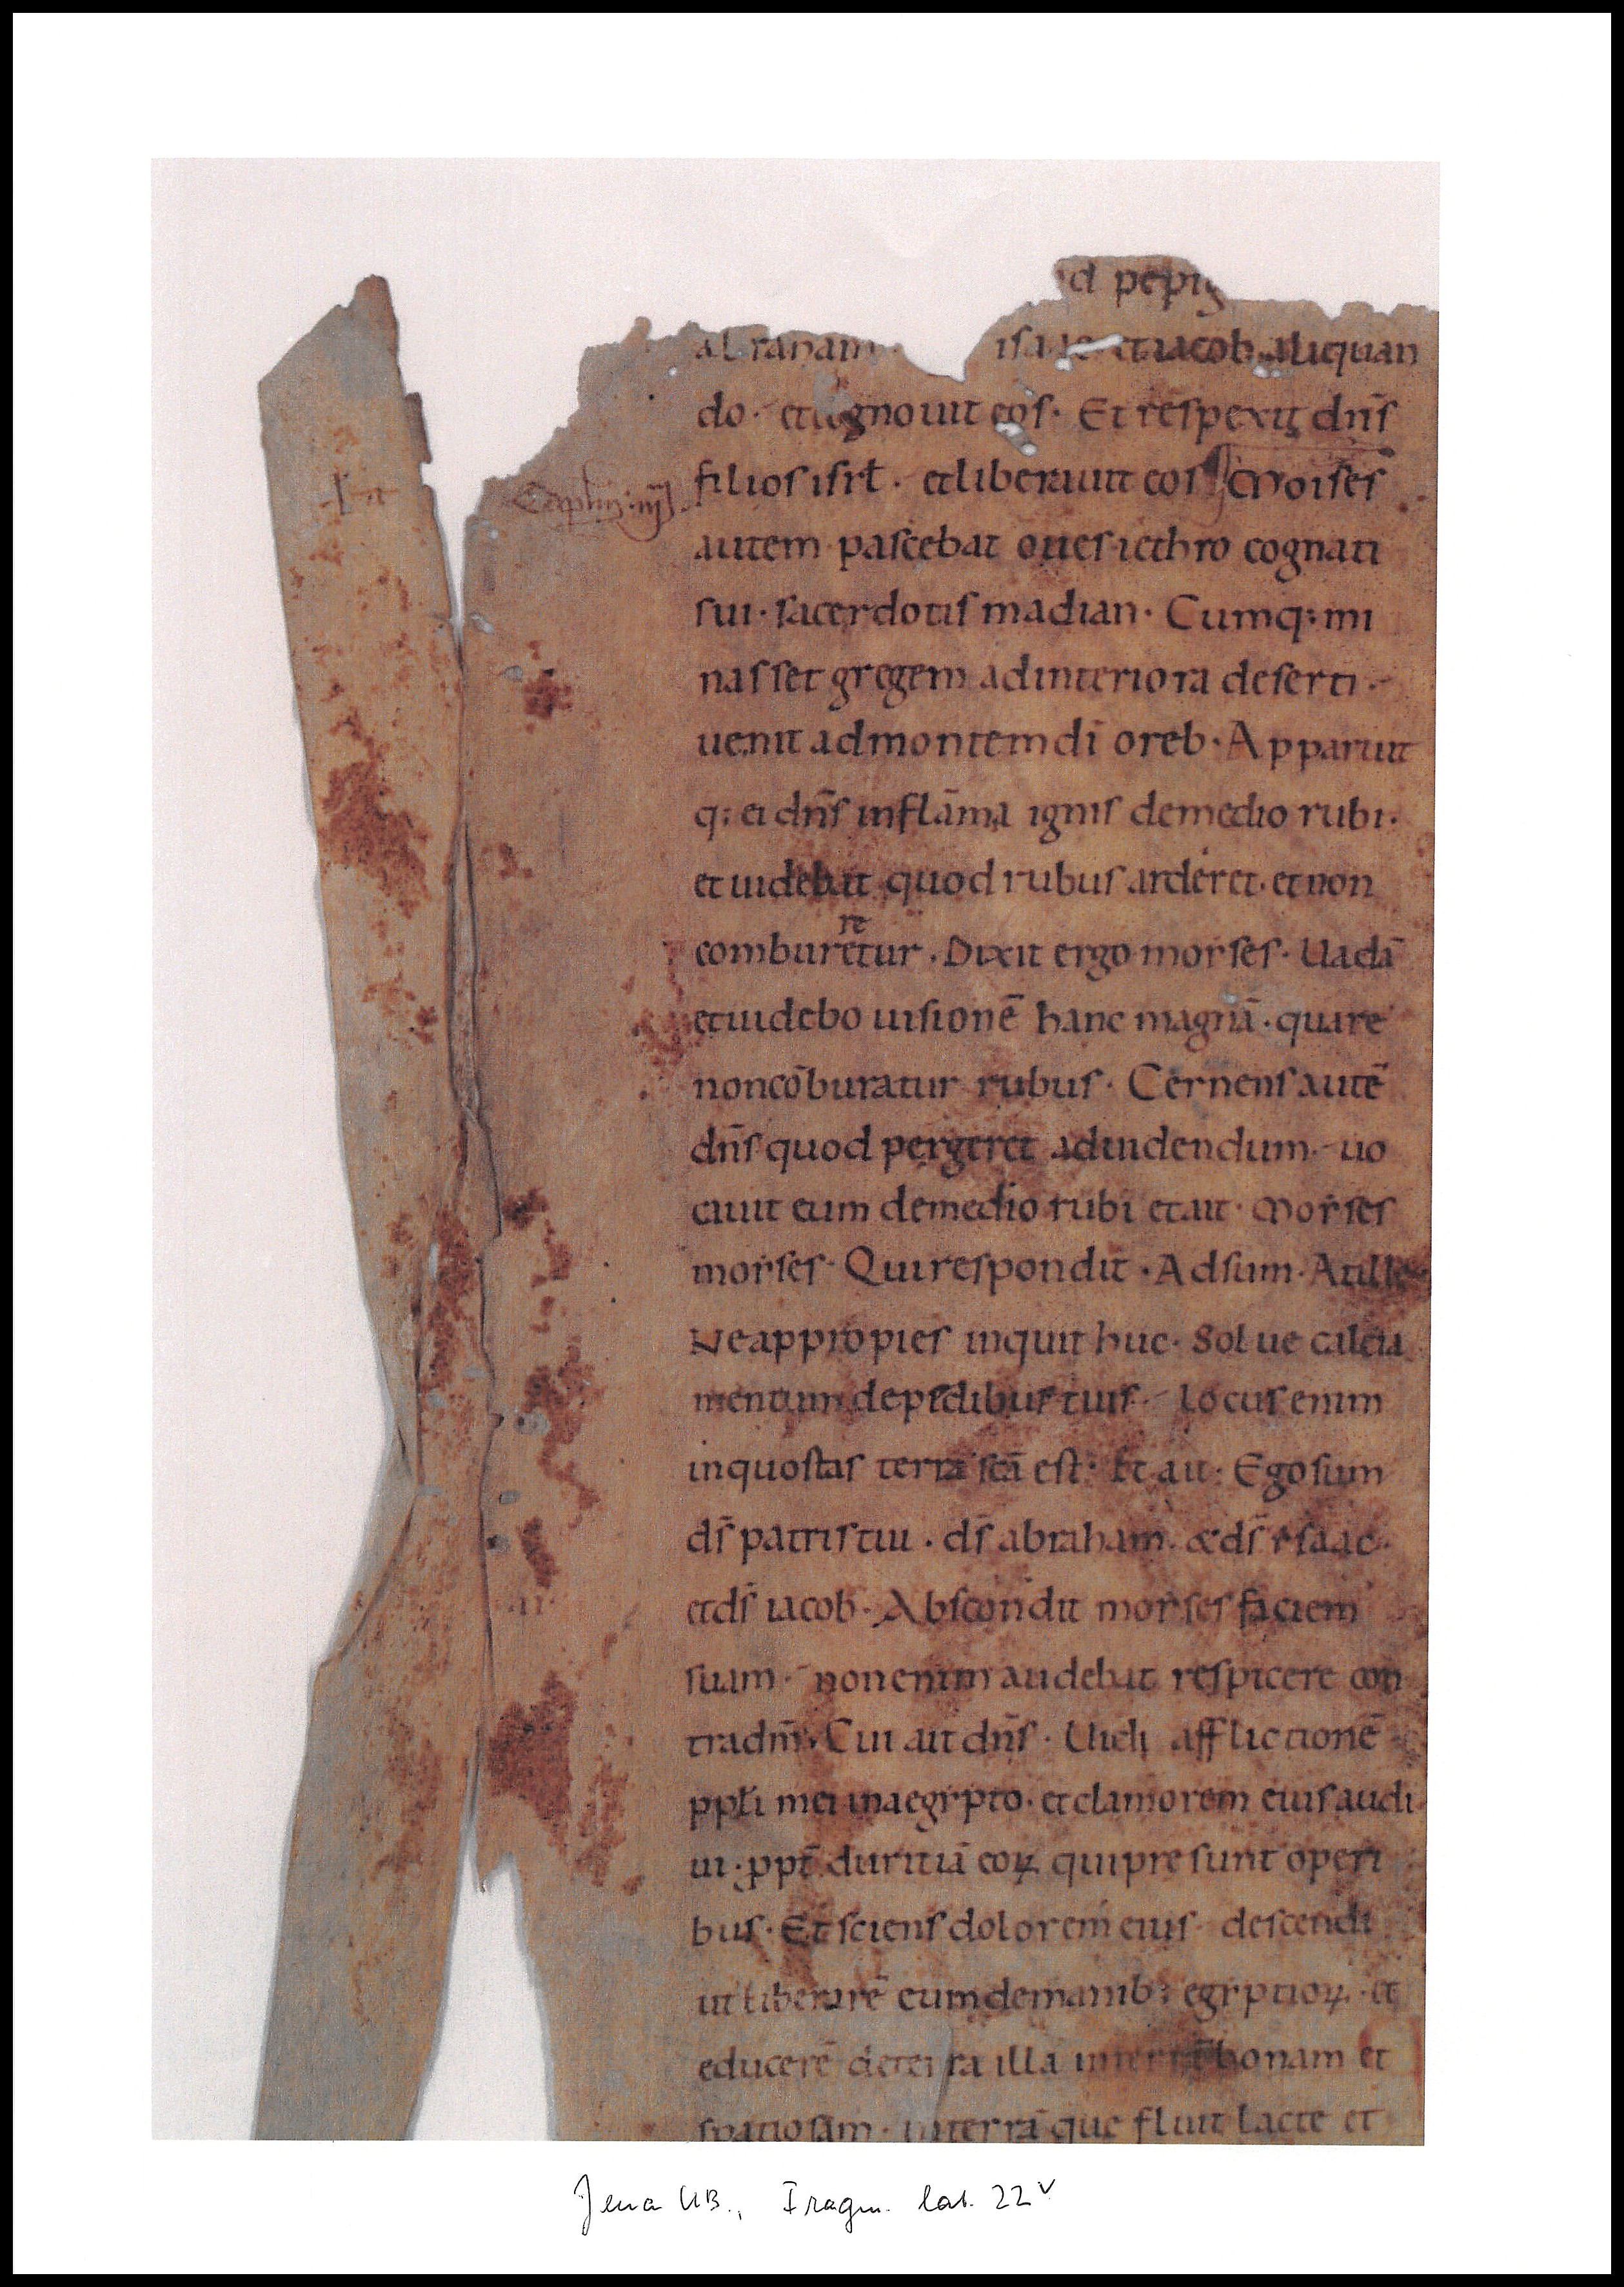 d pepig
abraham isaac et iacob aliquan
do· et cognouit eos· Et respexit dn̄s
filios isrł· et liberauit eos Moises
Capitulū·iij
autem pascebat oues iethro cognati
sui· sacerdotis madian· Cumq; mi
nasset gregem ad interiora deserti·
uenit ad montem dī oreb· Apparuit
q; ei dn̄s in flāma ignis de medio rubi·
et uidebat quod rubus arderet· et non
re
comburetur· Dixit ergo moyses· Uadā
et uidebo uisionē hanc magnā· quare
non cōburatur rubus· Cernens autē
dn̄s quod pergeret ad uidendum· uo
cauit eum de medio rubi et ait· Moyses
moyses· Qui respondit· Adsum· At ille
Ne appropies inquit huc· Solue calcia
mentum de pedibus tuis· Locus enim
in quo stas terra scā est· Et ait· Ego sum
ds̄ patris tui· ds̄ abraham· & ds̄ ysaac·
et ds̄ iacob· Abscondit moyses faciem
suam· non enim audebat respicere con
tra dn̄m· Cui ait dn̄s· Uidi afflictionē
ppłi mei in aegypto· et clamorem eius audi
ui· ppt̄ duritiā eoꝝ qui presunt operi
bus· Et sciens dolorem eius· descendi
ut liberarē eum de manib; egyptioꝝ· et
educerē de terra illa in terrā bonam et
spatiosam· in terrā que fluit lacte et
Jena UB., Fragm. lat. 22v